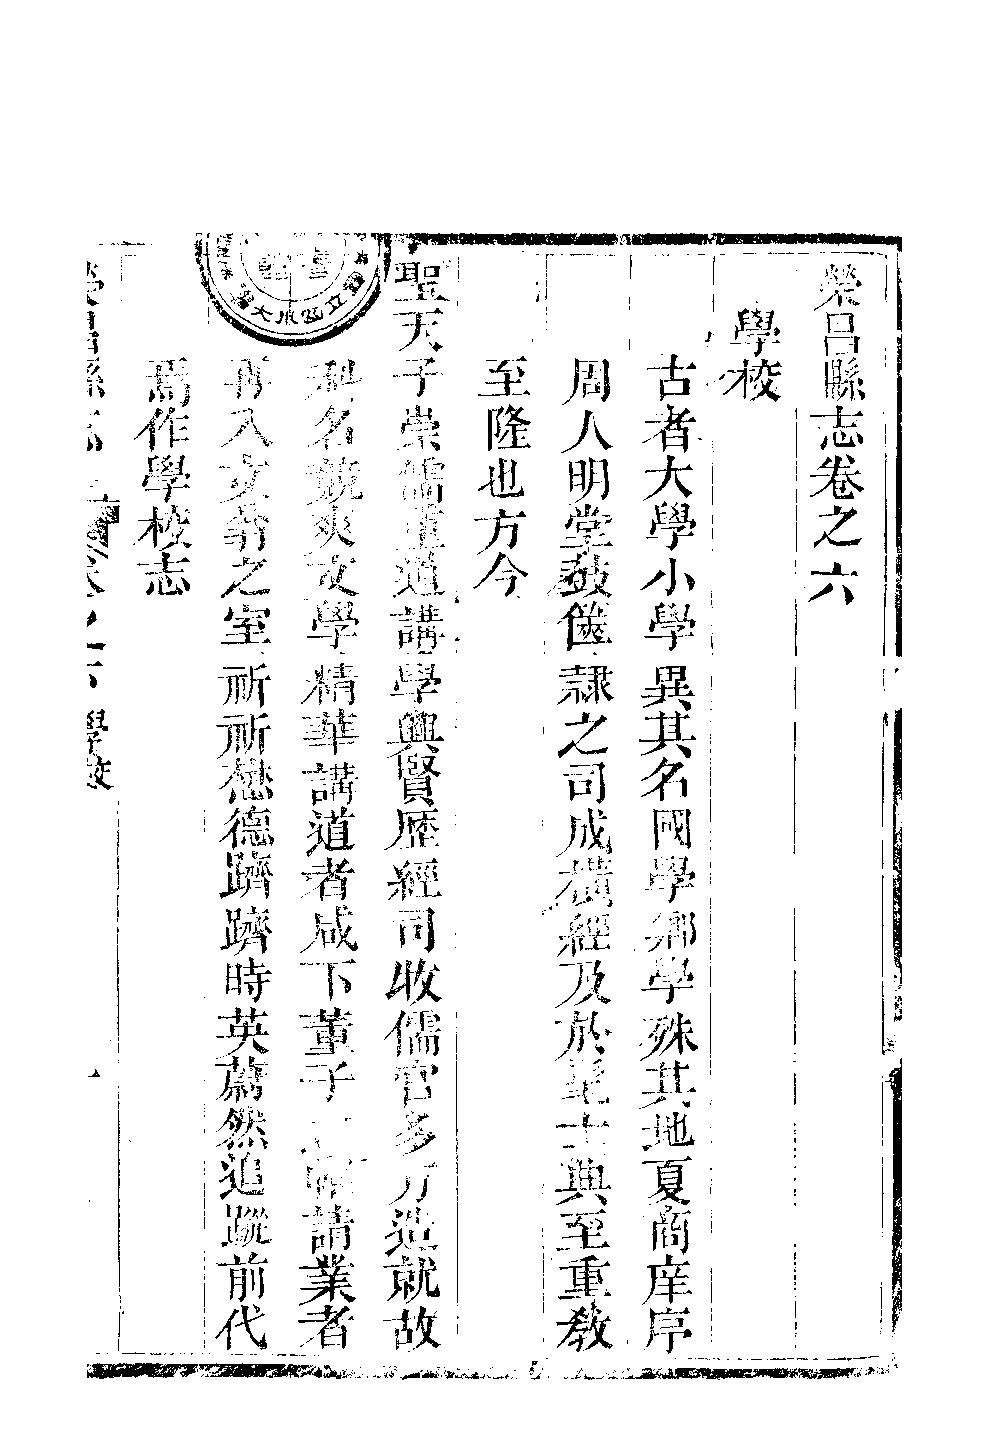 榮昌縣志卷之六
學校
古者大學小學異其名國學鄉學殊其地夏商庠序
周人明堂鼓篋隸之司成橫經及於髦士典至重教
至隆也方今
聖天子崇儒重道講學興賢歷經司牧儒官多方造就故
科名競爽文學精華講道者咸下董子之帷請業者
再入文翁之室祈祈懋德蹌蹌時英蔚然追蹤前代
焉作學校志
榮昌縣志 卷之六 學校 一